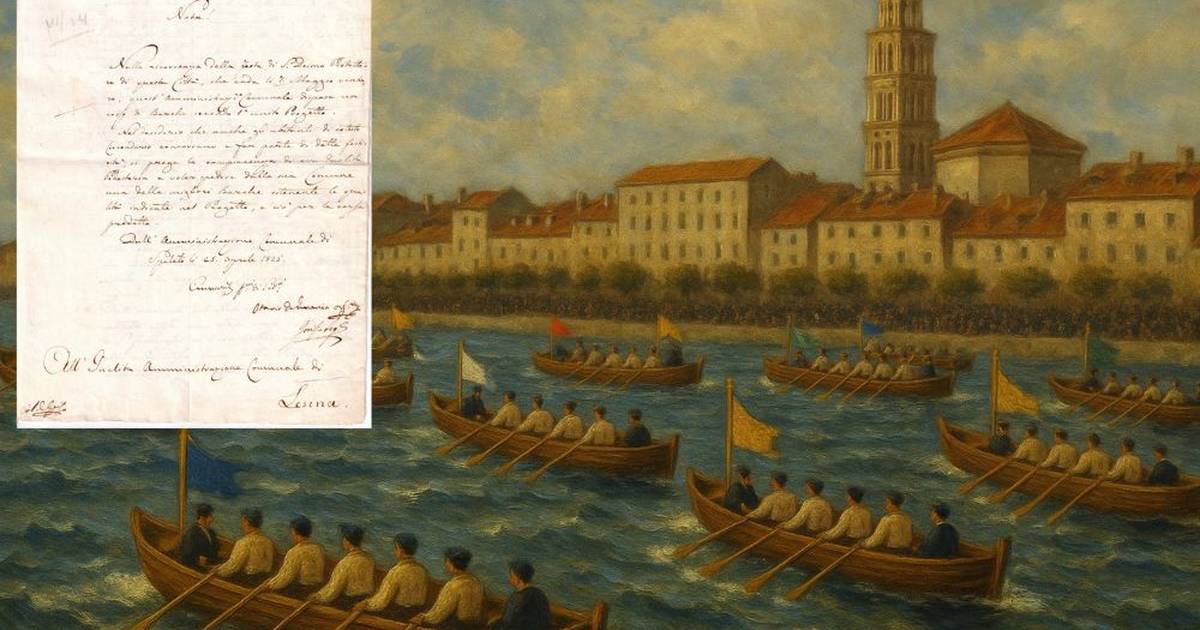 Nota
Nella ricorrenza della festa di S. Doimo Protetto-
re di questa Città, che cade li 7 Maggio ventu-
ro, quest' Amministraz. Comunale dispose una
corsa di Barche secondo l' unito Progetto.
Nel desiderio che anche gli abitanti di cotesto
Circondario concorrano a far parte di detta festi-
vità, si prega la compiacenza di
a voler spedire dalla sua Comune
una delle migliori Barche ritenente le qua-
lità indicate nel Progetto, e ciò per la corsa
predetta.
Dall' Amministrazione Comunale di
Spalato li 25. aprile 1825.
All' Inclita Amministrazione Comunale di
Lesina.